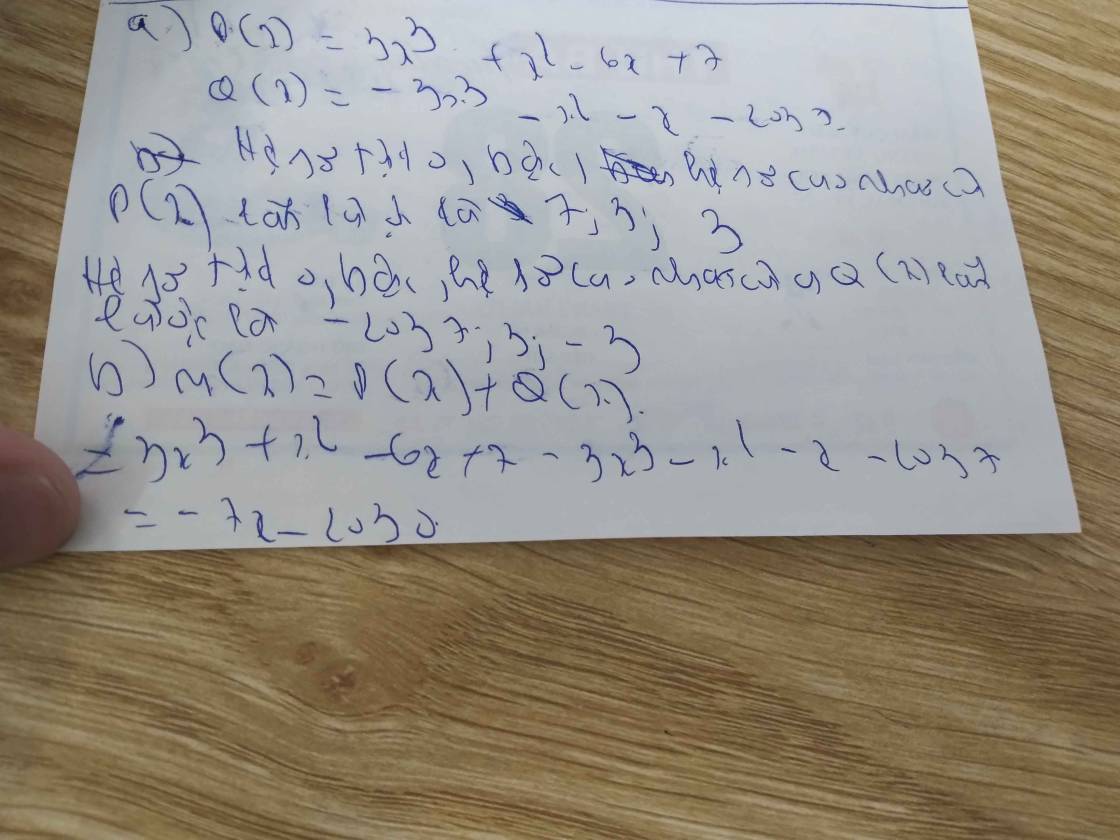 a) P(x) = 3x³ + x² - 6x + 7
Q(x) = - 3x³ - x² - x - 2037.
Hệ số tự do, bậc, hệ số cao nhất của
P(x) lần lượt là 7; 3; 3
Hệ số tự do, bậc, hệ số cao nhất của Q(x) lần
lượt là - 2037; 3; - 3
b) M(x) = P(x) + Q(x).
= 3x³ + x² - 6x + 7 - 3x³ - x² - x - 2037
= - 7x - 2030